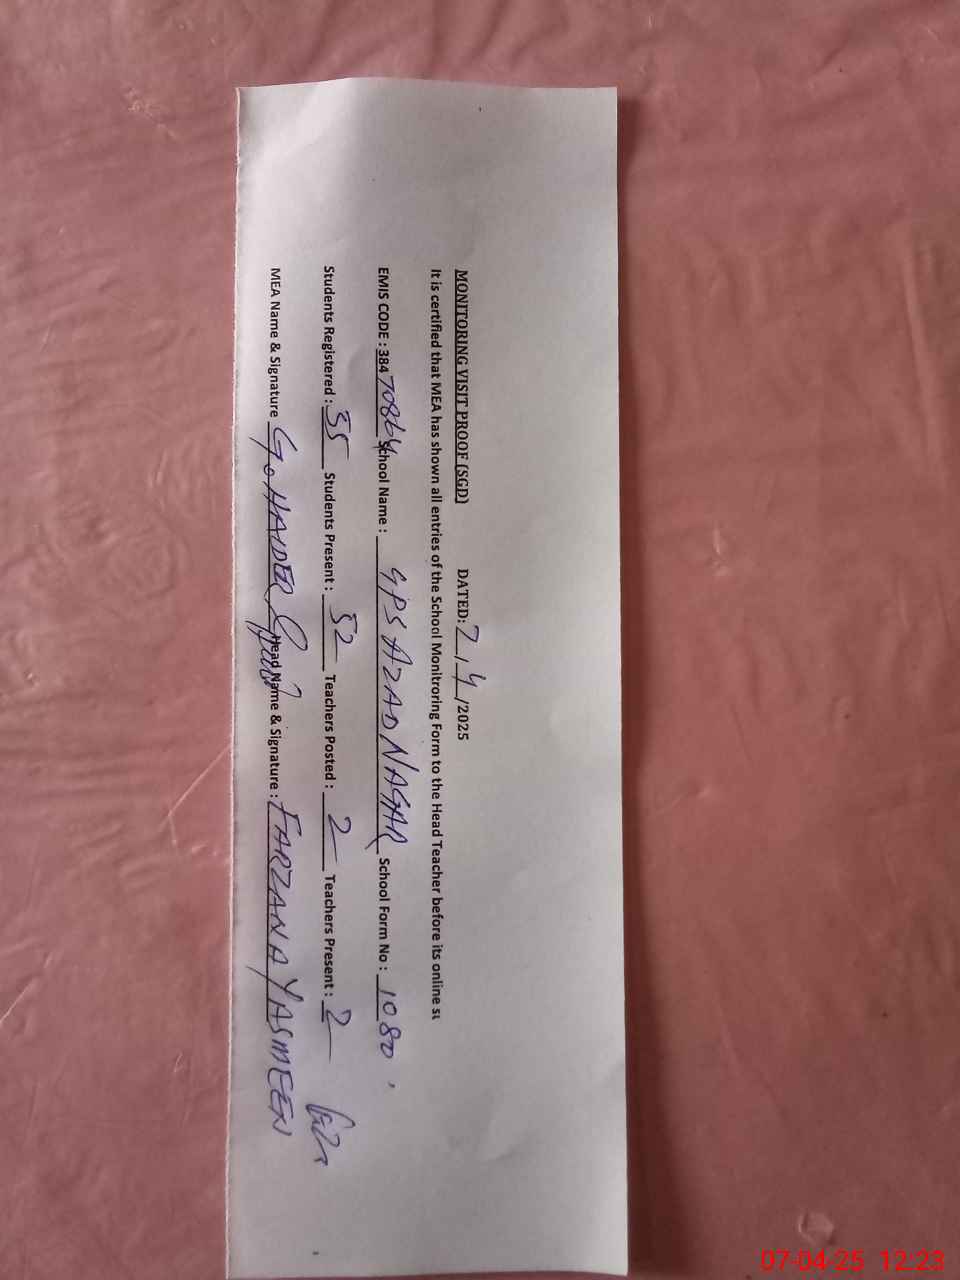 MONITORING VISIT PROOF (SGD) DATED: 7/4/2025
It is certified that MEA has shown all entries of the School Monitroring Form to the Head Teacher before its online su
EMIS CODE : 38470864 School Name : GPS AZAD NAGAR School Form No : 1080
Students Registered : 35 Students Present : 32 Teachers Posted : 2 Teachers Present : 2
MEA Name & Signature G. HAIDER Head Name & Signature : FARZANA YASMEEN
07-04-25 12:23